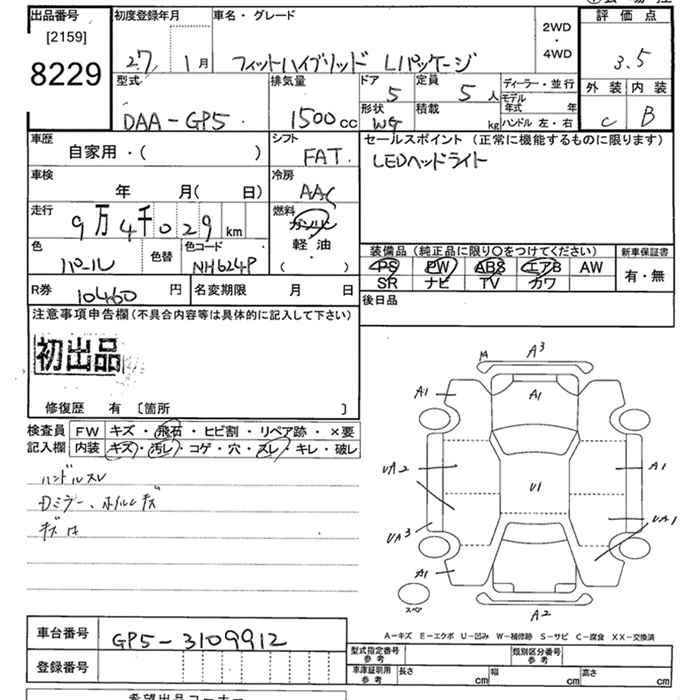 出品番号 初度登録年月 車名・グレード 評価点
[2159] 2WD
8229 27 1月 フィットハイブリッド Lパッケージ ・ 3.5
4WD
型式 排気量 ドア 定員 ディーラー・並行 外装 内装
5 5人 モデル年式 年
DAA-GP5 1500cc 形状 積載 C B
WG kg ハンドル 左・右
車歴 シフト セールスポイント (正常に機能するものに限ります)
自家用・( ) FAT LEDヘッドライト
車検 冷房
年 月( 日) AAC
走行 燃料
9万4千029km ガソリン
色 色替 色コード 軽油 装備品 (純正品に限り○をつけてください) 新車保証書
パール NH624P ( ) PS PW ABS エアB AW 有・無
SR ナビ TV カワ
R券 10460円 名変期限 月 日 後日品
注意事項申告欄(不具合内容等は具体的に記入して下さい)
初出品
修復歴 有 〔箇所 〕
検査員 FW キズ・飛石・ヒビ割・リペア跡・×要
記入欄 内装 キズ・汚レ・コゲ・穴・スレ・キレ・破レ
ハンドルスレ
Dミラー、ホイルキズ
A3
A1 A1
UA2 U1 A1
UA3 UA1
A1 A2
スペア
A-キズ E-エクボ U-凹み W-補修跡 S-サビ C-腐食 XX-交換済
車台番号 GP5-3109912
登録番号
型式指定番号 参考 類別区分番号 参考
車庫証明用 参考 長さ cm 幅 cm 高さ cm
希望出品コーナー